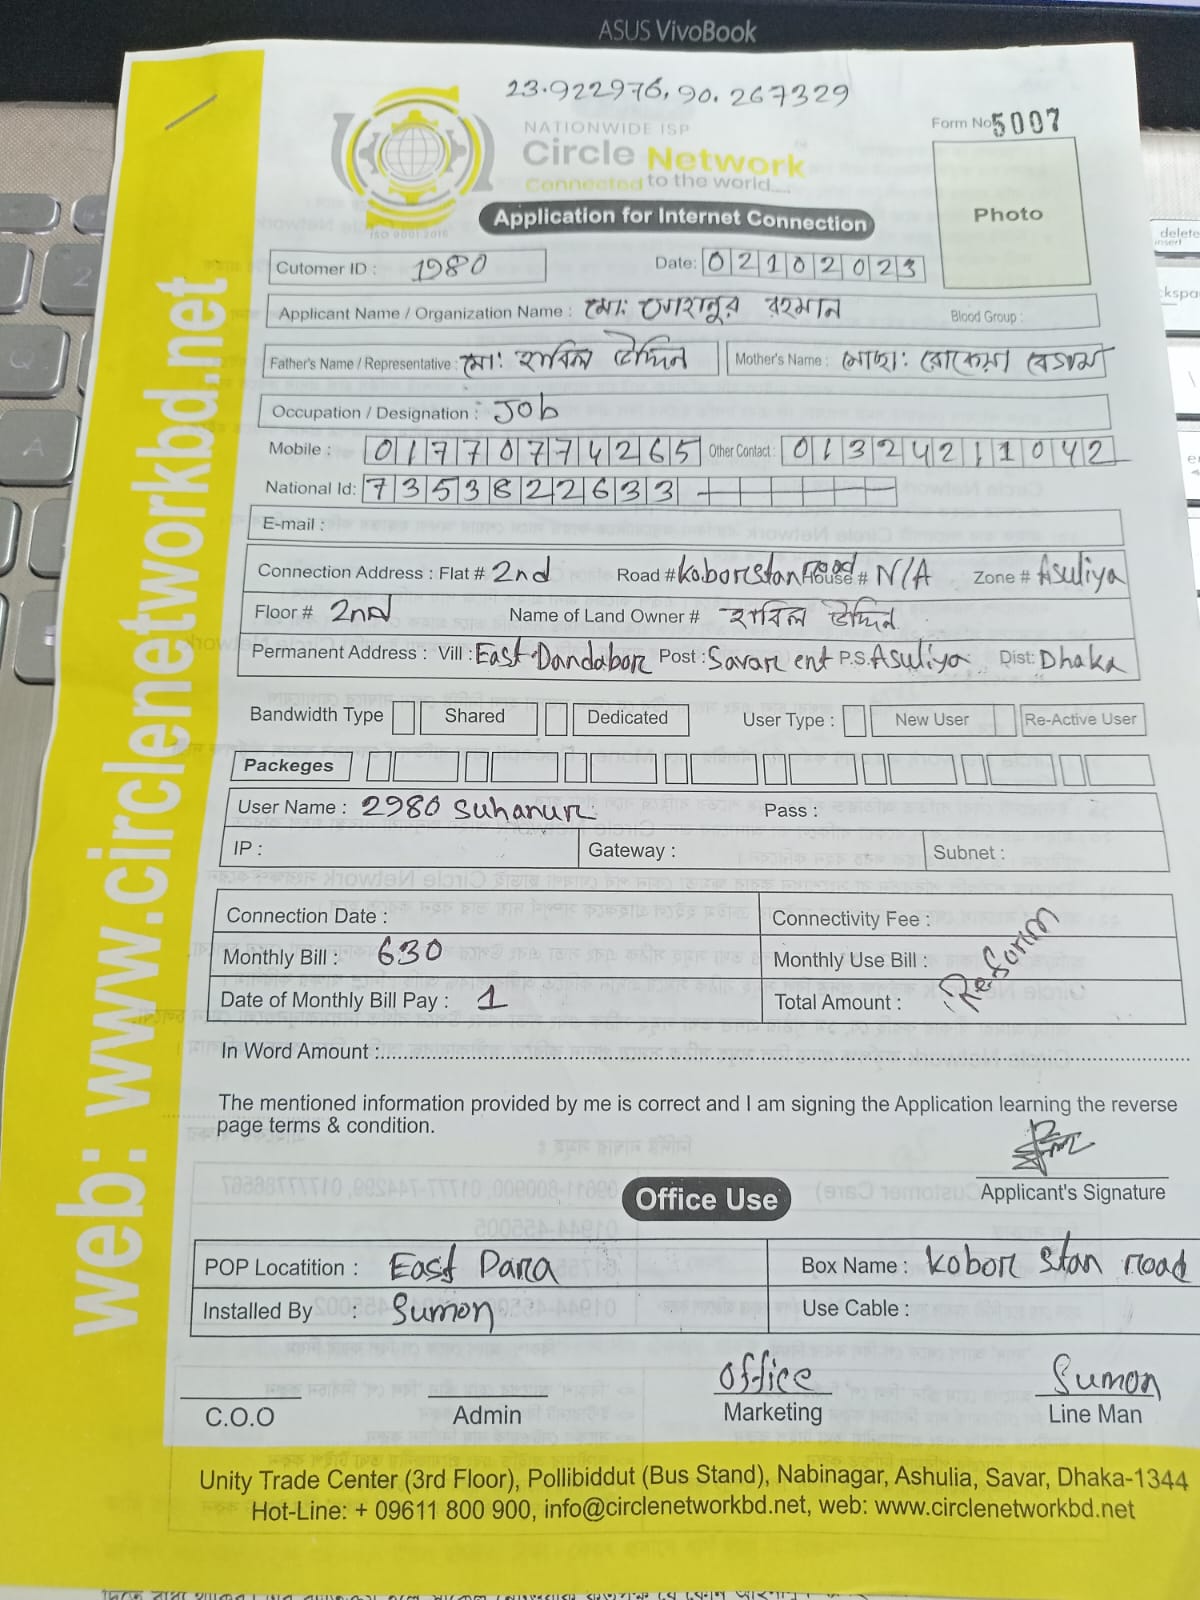 ASUS VivoBook
23.922976, 90.267329
NATIONWIDE ISP
Circle Network
Connected to the world....
ISO 9001:2015
Form No 5007
Photo
Application for Internet Connection
Cutomer ID : 1980 Date: 02102023
Applicant Name / Organization Name : মো: সোহানুর রহমান Blood Group :
Father's Name / Representative : মো: হাবিল উদ্দিন Mother's Name : মোছা: রোকেয়া বেগম
Occupation / Designation : Job
Mobile : 01770774265 Other Contact : 01324211042
National Id: 7353822633
E-mail :
Connection Address : Flat # 2nd Road # koborstan road House # N/A Zone # Asuliya
Floor # 2nd Name of Land Owner # হাবিল উদ্দিন
Permanent Address : Vill : East Dandabor Post : Savar ent P.S. Asuliya Dist: Dhaka
Bandwidth Type Shared Dedicated User Type : New User Re-Active User
Packeges
User Name : 2980 Suhanur Pass :
IP : Gateway : Subnet :
Connection Date : Connectivity Fee :
Monthly Bill : 630 Monthly Use Bill :
Date of Monthly Bill Pay : 1 Total Amount :
In Word Amount :
The mentioned information provided by me is correct and I am signing the Application learning the reverse
page terms & condition.
Applicant's Signature
Office Use
POP Locatition : East Para Box Name : kobor stan road
Installed By : Sumon Use Cable :
C.O.O Admin office Marketing Sumon Line Man
Unity Trade Center (3rd Floor), Pollibiddut (Bus Stand), Nabinagar, Ashulia, Savar, Dhaka-1344
Hot-Line: + 09611 800 900, info@circlenetworkbd.net, web: www.circlenetworkbd.net
web: www.circlenetworkbd.net